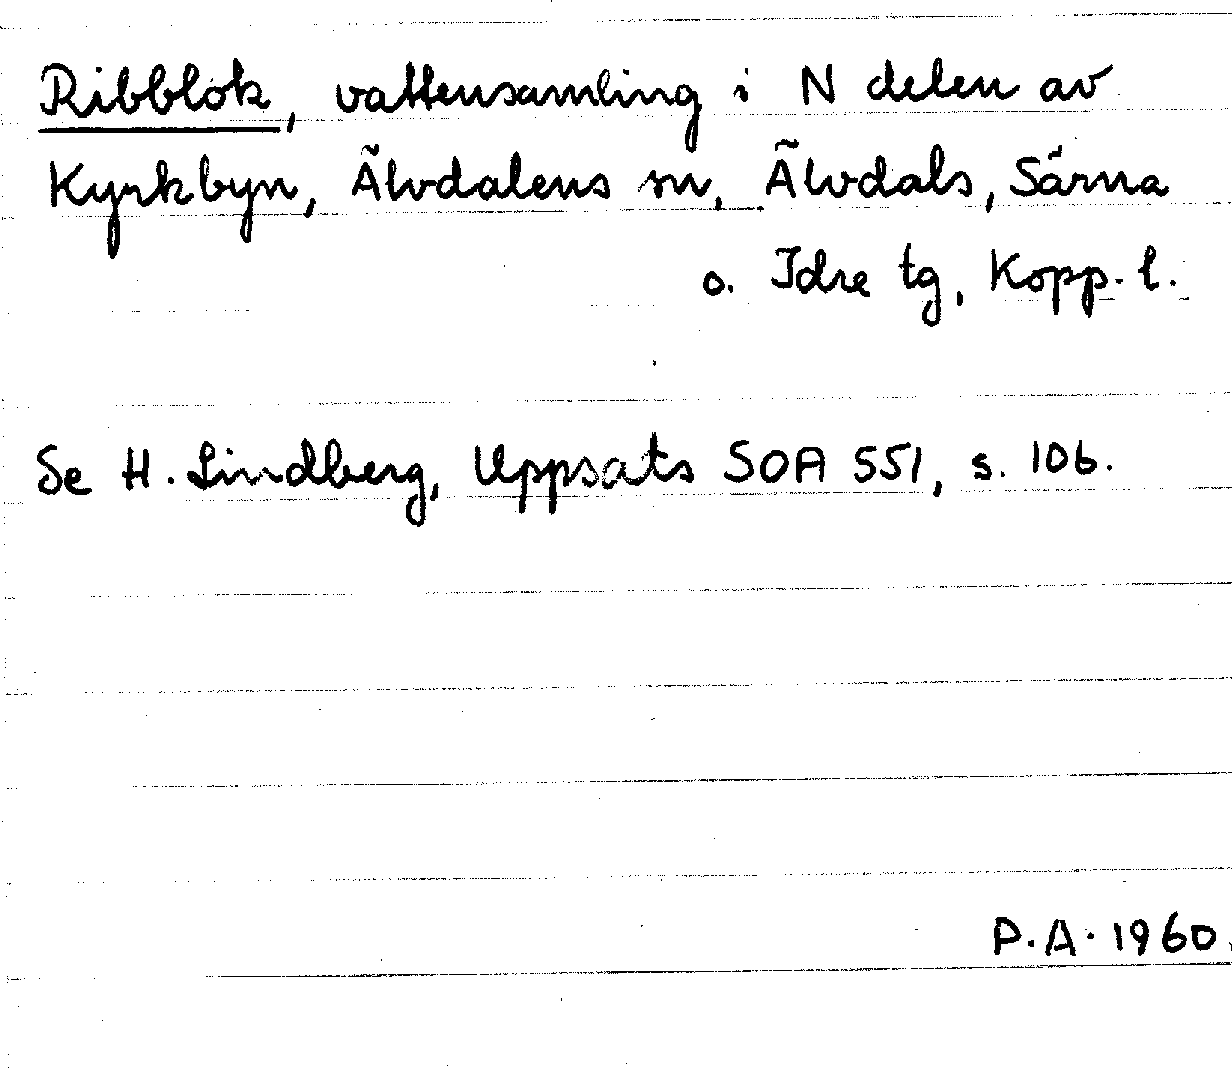 Ribblok, vattensamling i N delen av
Kyrkbyn, Älvdalens sn, Älvdals, Särna
o. Idre tg, Kopp. l.
Se H. Lindberg, Uppsats SOA 551, s. 106.
P.A. 1960.